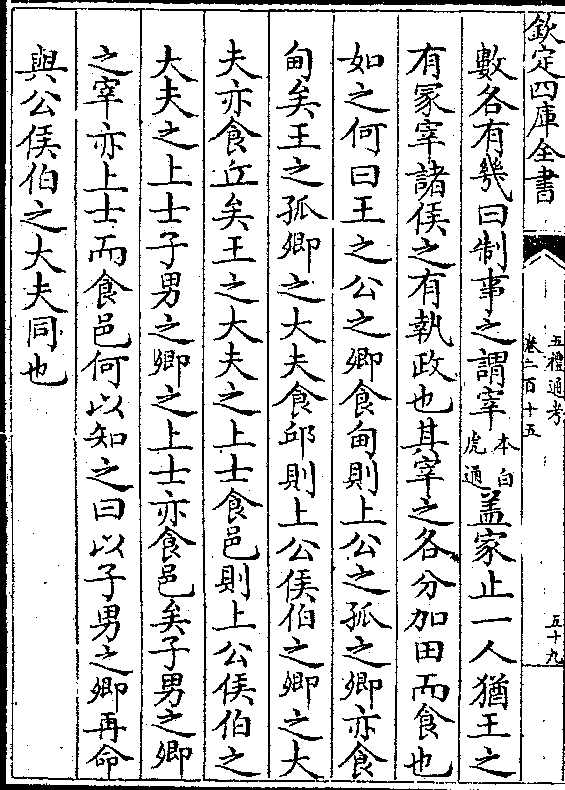 欽定四庫全書
五禮通考
卷二百十五
五十九
數各有幾曰制事之謂宰本白虎通蓋家止一人猶王之
有冢宰諸侯之有執政也其宰之各分加田而食也
如之何曰王之公之卿食甸則上公之孤之卿亦食
甸矣王之孤卿之大夫食邱則上公侯伯之卿之大
夫亦食丘矣王之大夫之上士食邑則上公侯伯之
大夫之上士子男之卿之上士亦食邑矣子男之卿
之宰亦上士而食邑何以知之曰以子男之卿再命
與公侯伯之大夫同也